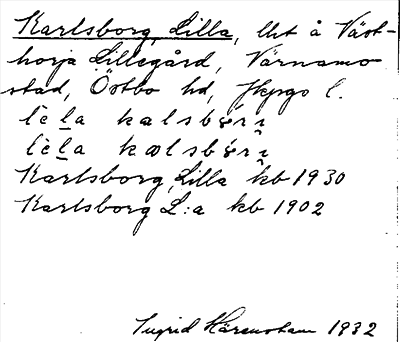 Karlsborg, Lilla, lht å Väst-
horja Lillegård, Värnamo
stad, Östbo hd, Jkpgs l.
kalsb
kalsb
Karlsborg, Lilla kb 1930
Karlsborg L:a kb 1902
Ingrid 1932